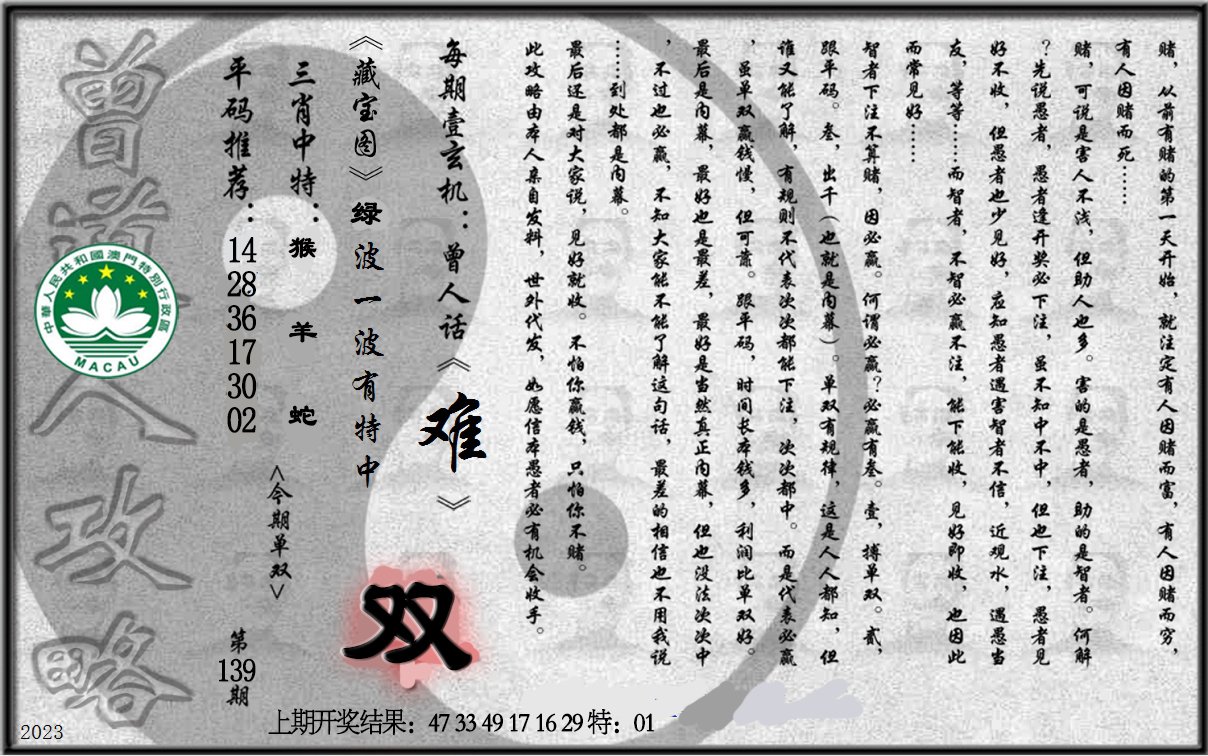 赌，从前有赌的第一天开始，就注定有人因赌而富，有人因赌而穷，
有人因赌而死……
赌，可说是害人不浅，但助人也多。害的是愚者，助的是智者。何解
？先说愚者，愚者逢开奖必下注，虽不知中不中，但也下注，愚者见
好不收，但愚者也少见好，应知愚者遇害智者不信，近观水，遇愚当
友，等等……而智者，不智必赢不注，能下能收，见好即收，也因此
而常见好……
智者下注不算赌，因必赢。何谓必赢？必赢有叁。壹，搏单双。贰，
跟平码。叁，出千（也就是内幕）。单双有规律，这是人人都知，但
谁又能了解，有规则不代表次次都能下注，次次都中。而是代表必赢
，虽单双赢钱慢，但可靠。跟平码，时间长本钱多，利润比单双好。
最后是内幕，最好也是最差，最好是当然真正内幕，但也没法次次中
，不过也必赢，不知大家能不能了解这句话，最差的相信也不用我说
……到处都是内幕。
最后还是对大家说，见好就收。不怕你赢钱，只怕你不赌。
此攻略由本人亲自发料，世外代发，如愿信本愚者必有机会收手。
每期壹玄机：曾人话《难》
《藏宝图》绿波一波有特中
双
三肖中特：猴 羊 蛇
<今期单双>
平码推荐：14 28 36 17 30 02
第139期
曾道人攻略
中華人民共和國澳門特別行政區
MACAU
上期开奖结果：47 33 49 17 16 29 特：01
2023